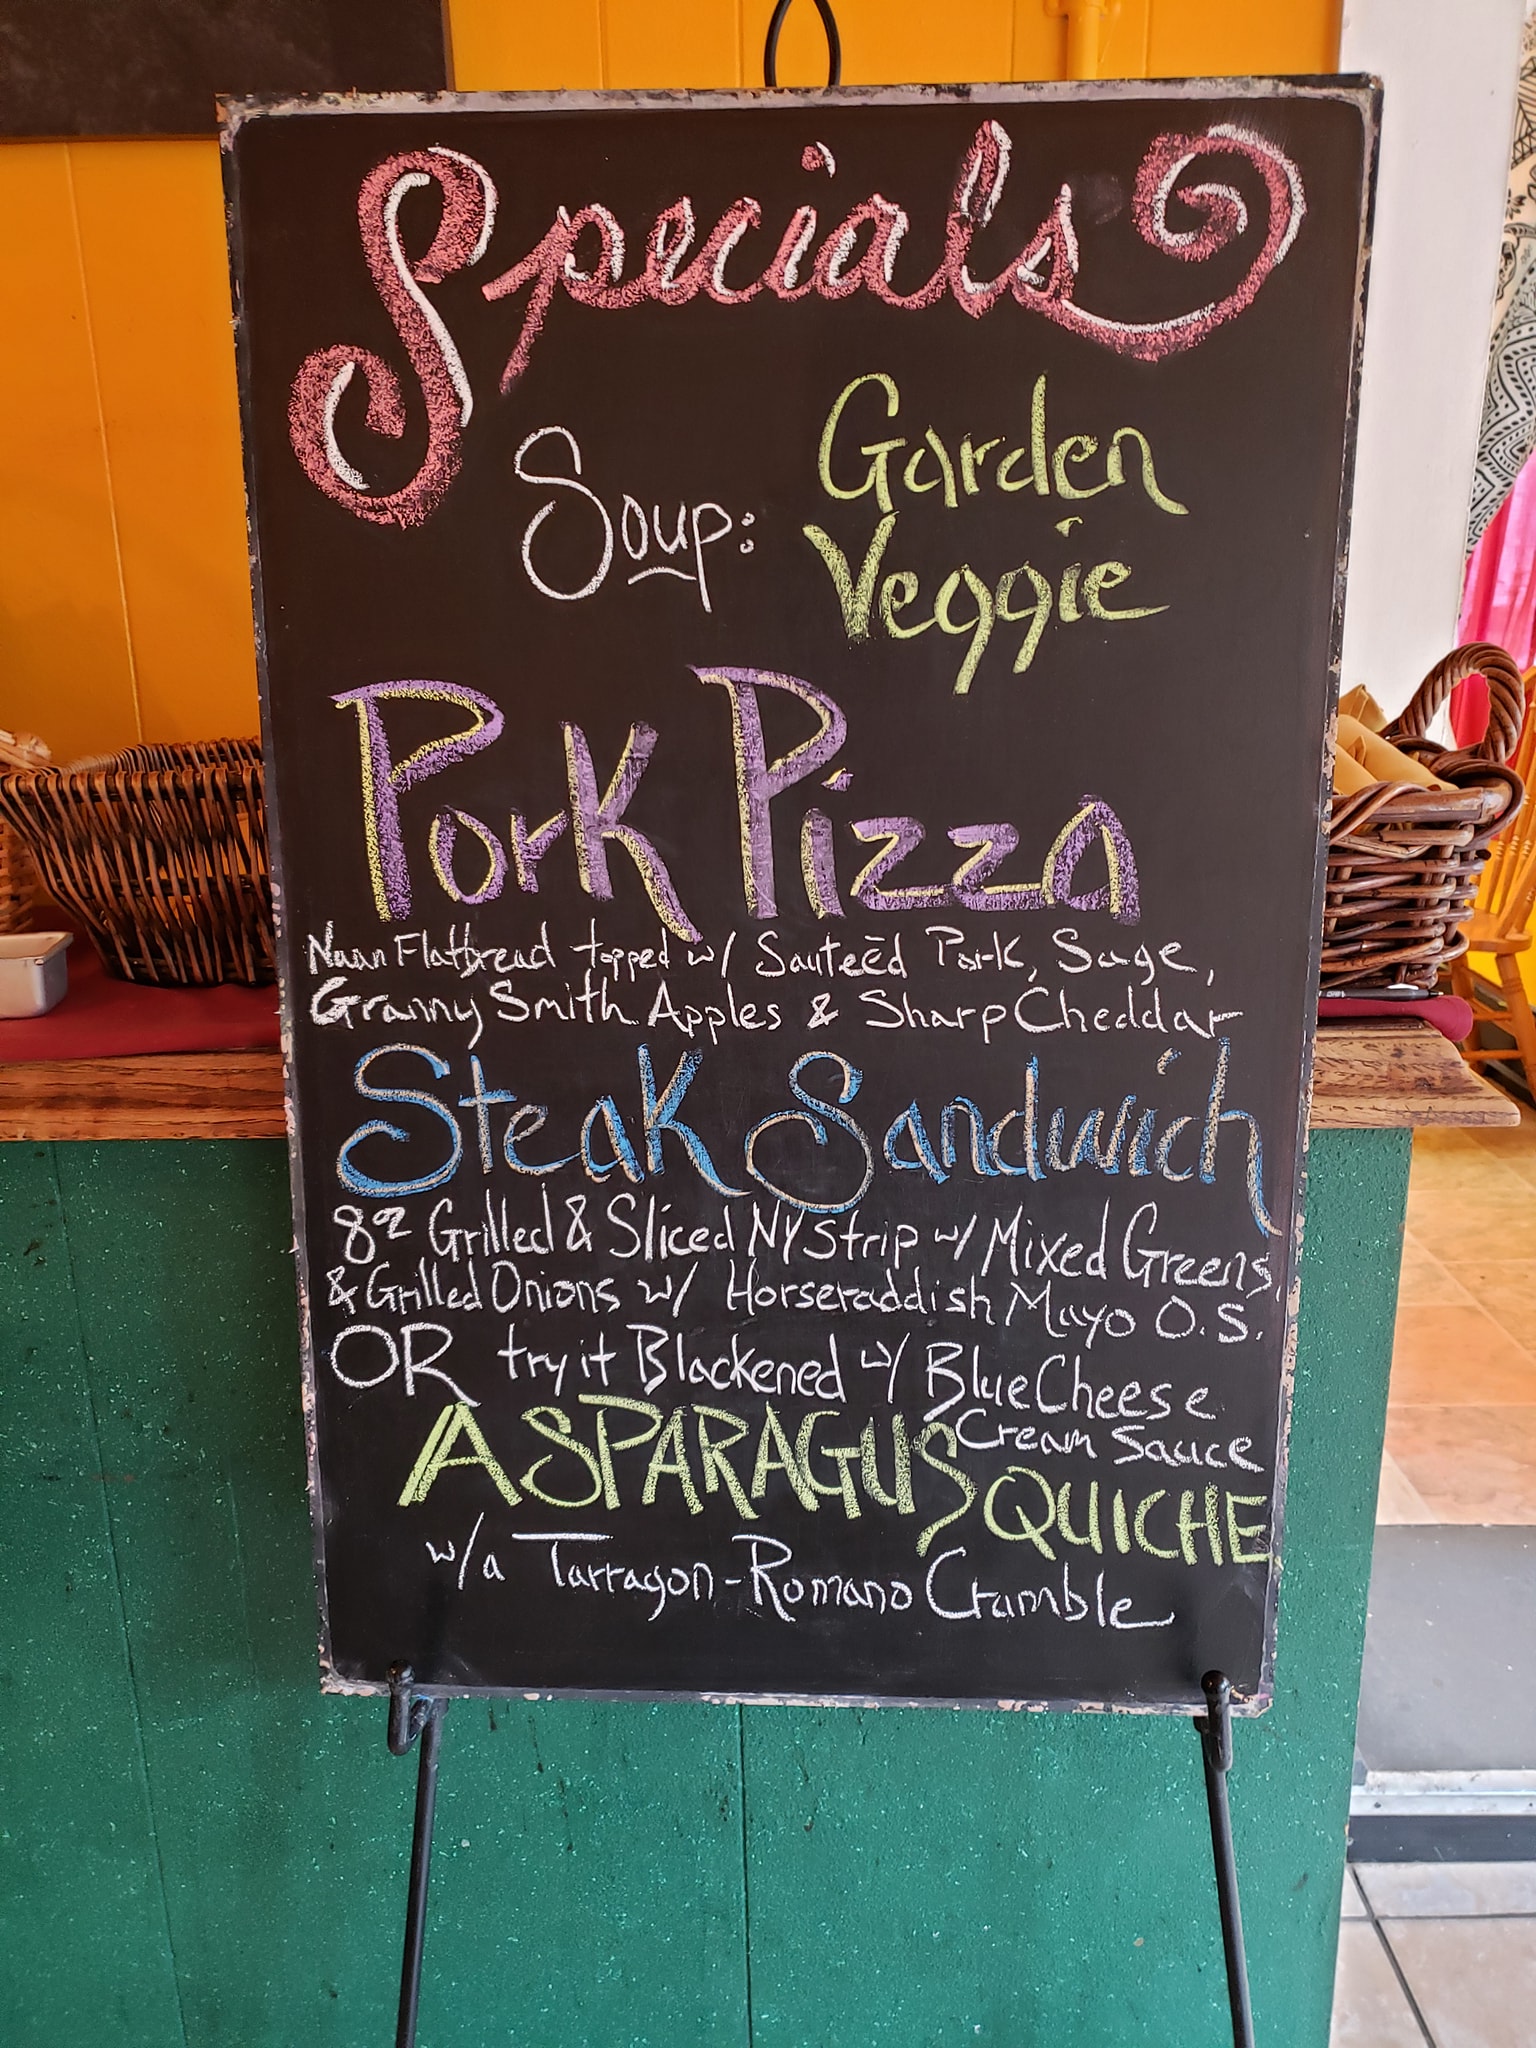 Specials
Soup: Garden
Veggie
Pork Pizza
Naan Flatbread topped w/ Sauteēd Pork, Sage,
Granny Smith Apples & Sharp Cheddar
Steak Sandwich
8oz Grilled & Sliced NY Strip w/ Mixed Greens,
& Grilled Onions w/ Horseraddish Mayo O.S.
OR try it Blackened w/ Blue Cheese
Cream Sauce
ASPARAGUS QUICHE
w/a Tarragon-Romano Crumble